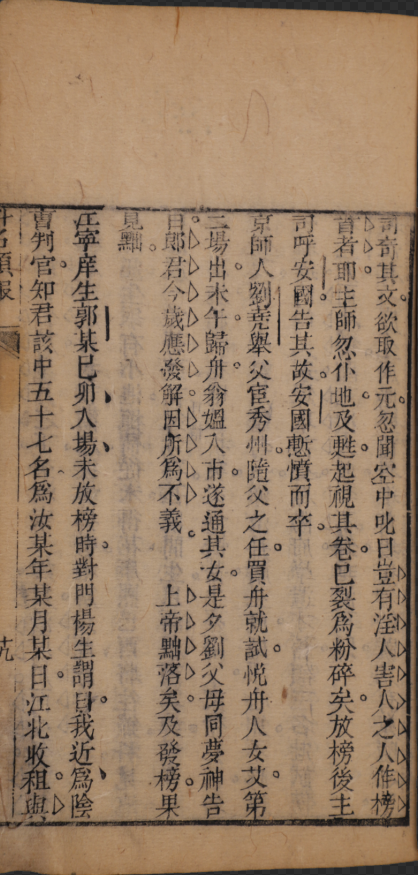 司奇其文欲取作元忽聞空中叱曰豈有淫人害人之人作榜
首者耶主師忽仆地及甦起視其卷已裂爲粉碎矣放榜後主
司呼安國告其故安國慙憤而卒
京師人劉堯舉父宦秀州隨父之任買舟就試悅舟人女艾第
二場出未午歸舟翁媼入市遂通其女是夕劉父母同夢神告
曰郎君今歲應發解因所爲不義　上帝黜落矣及發榜果
見黜
江寧庠生郭某巳卯入場未放榜時對門楊生謂曰我近爲陰
曹判官知君該中五十七名爲汝某年某月某日江北收租與